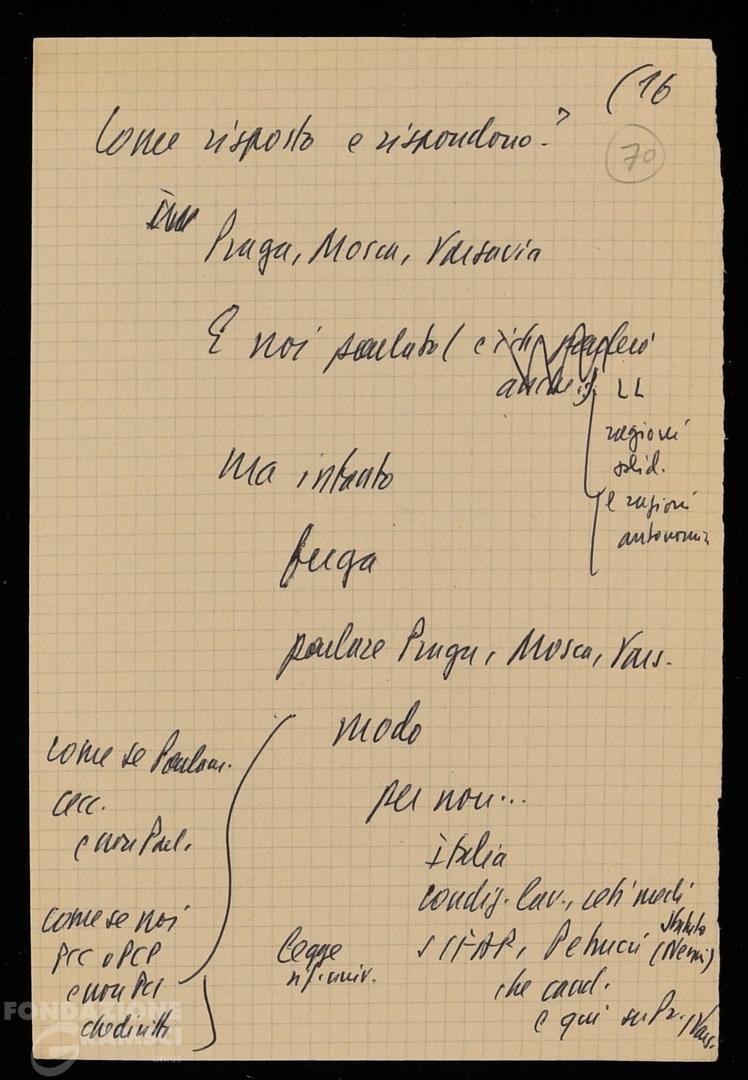 (16
70
Come risposto e rispondono?
Praga, Mosca, Varsavia
E noi parlato (
anche
LL
ragioni
solid.
e ragioni
autonomia
Ma intanto
fuga
parlare Praga, Mosca, Vars.
modo
come se Parlam.
cecc.
e non Parl.
per non...
Italia
condiz. lav., ceti medi
come se noi
PCC o PCP
e non PCI
che diritti
Legge
rif. univ.
SIFAR, Petrucci (Nenni)
che cand.
e qui su Pr., Vars.
FONDAZIONE
GRAMSCI